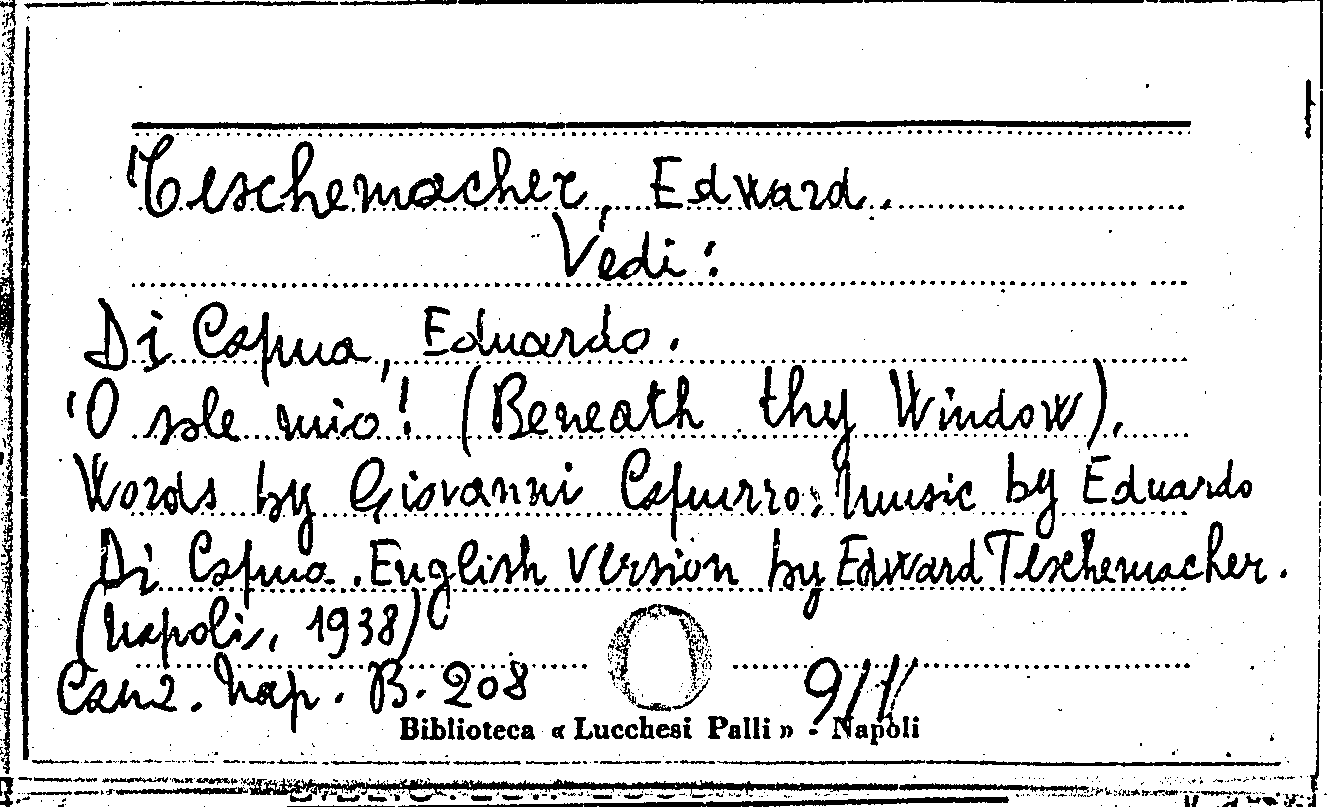 Teschemacher, Edward.
Vedi:
Di Capua, Eduardo.
'O sole mio! (Beneath thy Window).
Words by Giovanni Capurro; Music by Eduardo
Di Capua. English version by Edward Teschemacher.
(Napoli, 1938)
Canz. Nap. B. 208
Biblioteca « Lucchesi Palli » - Napoli